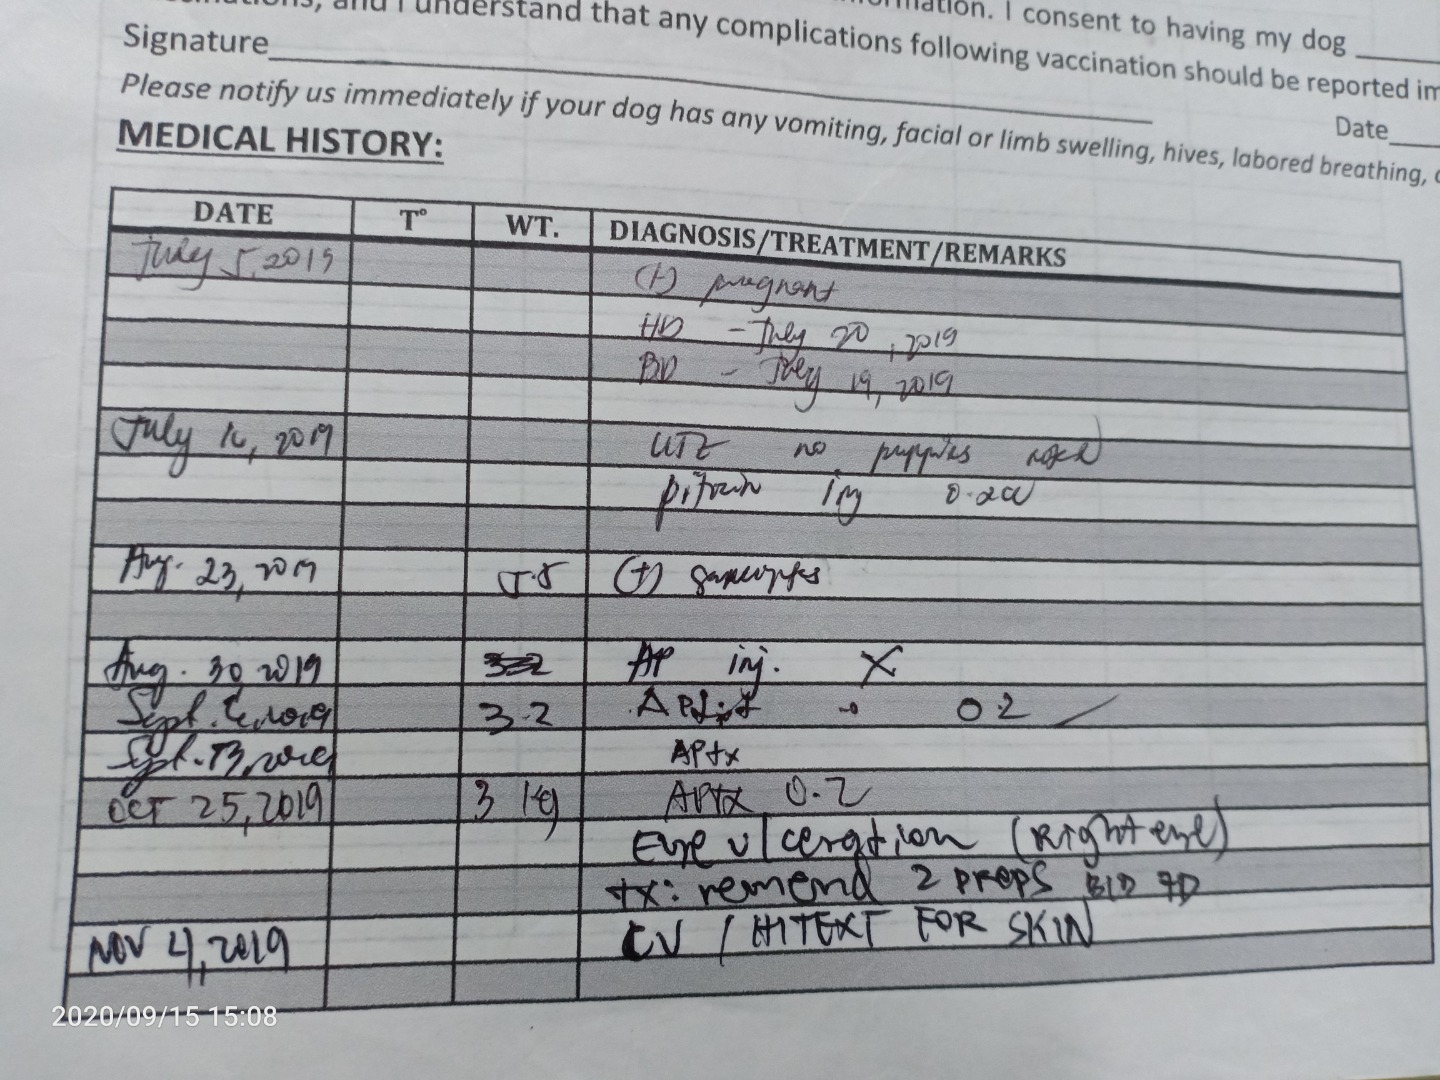 mation. I consent to having my dog
, and I understand that any complications following vaccination should be reported im
Signature
Date
Please notify us immediately if your dog has any vomiting, facial or limb swelling, hives, labored breathing,
MEDICAL HISTORY:
DATE T° WT. DIAGNOSIS/TREATMENT/REMARKS
July 5, 2019 (+) pregnant
HD - July 20, 2019
BD - July 19, 2019
July 16, 2019 UTZ no puppies
inj 0.2cc
Aug. 23, 2019 5.5 (+)
Aug. 30 2019 AP inj. X
Sept. 2019 3.2 0.2
Sept. 13, 2019 APtx
OCT 25, 2019 3 kg APtx 0.2
Eye ulceration (Right eye)
tx: remend 2 DROPS BID 7D
NOV 4, 2019 CV / HITEXT FOR SKIN
2020/09/15 15:08